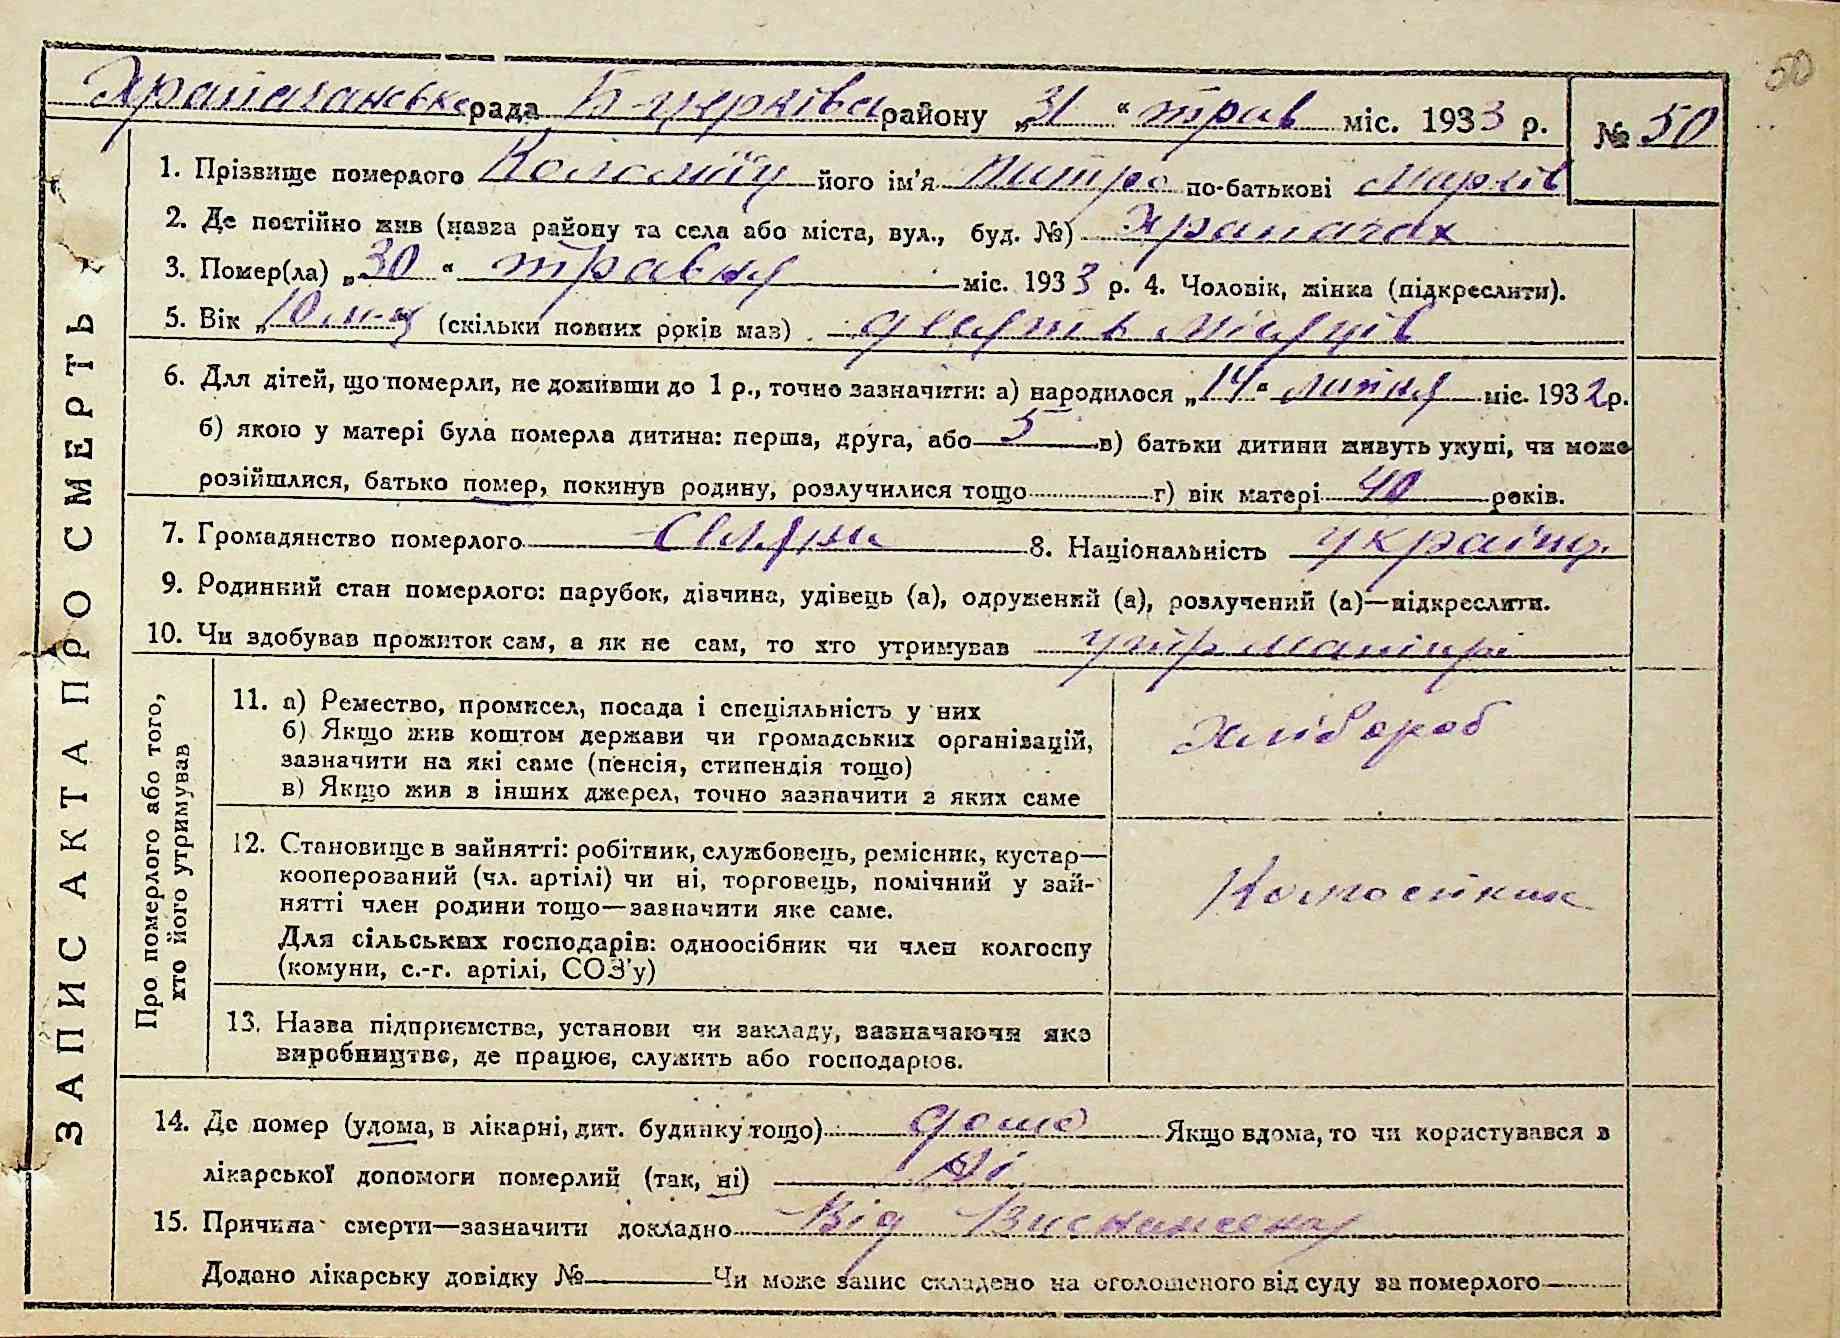 50
Храпачанська рада Б-церківс району „31“ трав міс. 1933 р. № 50
1. Прізвище померлого Коломієць його ім'я Митро по-батькові
2. Де постійно жив (назва району та села або міста, вул., буд. №) Храпачах
3. Помер(ла) „30“ травня міс. 1933 р. 4. Чоловік, жінка (підкреслити).
5. Вік „10 м-ц“ (скільки повних років має) десять місяців
6. Для дітей, що померли, не доживши до 1 р., точно зазначити: а) народилося „14“ липня міс. 1932 р.
б) якою у матері була померла дитина: перша, друга, або 5 в) батьки дитини живуть укупі, чи може
розійшлися, батько помер, покинув родину, розлучилися тощо г) вік матері 40 років.
7. Громадянство померлого 8. Національність україн.
9. Родинний стан померлого: парубок, дівчина, удівець (а), одружений (а), розлучений (а)—підкреслити.
10. Чи здобував прожиток сам, а як не сам, то хто утримував утр матірі
ЗАПИС АКТА ПРО СМЕРТЬ
Про померлого або того,
хто його утримував
11. а) Ремество, промисел, посада і спеціяльність у них
б) Якщо жив коштом держави чи громадських організацій,
зазначити на які саме (пенсія, стипендія тощо)
в) Якщо жив з інших джерел, точно зазначити з яких саме
Хлібороб
12. Становище в зайнятті: робітник, службовець, ремісник, кустар—
кооперований (чл. артілі) чи ні, торговець, помічний у зай-
нятті член родини тощо—зазначити яке саме.
Для сільських господарів: одноосібник чи член колгоспу
(комуни, с.-г. артілі, СОЗ'у)
13. Назва підприємства, установи чи закладу, зазначаючи яке
виробництво, де працює, служить або господарює.
14. Де помер (удома, в лікарні, дит. будинку тощо) дома Якщо вдома, то чи користувався з
лікарської допомоги померлий (так, ні) Ні
15. Причина смерти—зазначити докладно Від Виснаження
Додано лікарську довідку № Чи може запис складено на оголошеного від суду за померлого